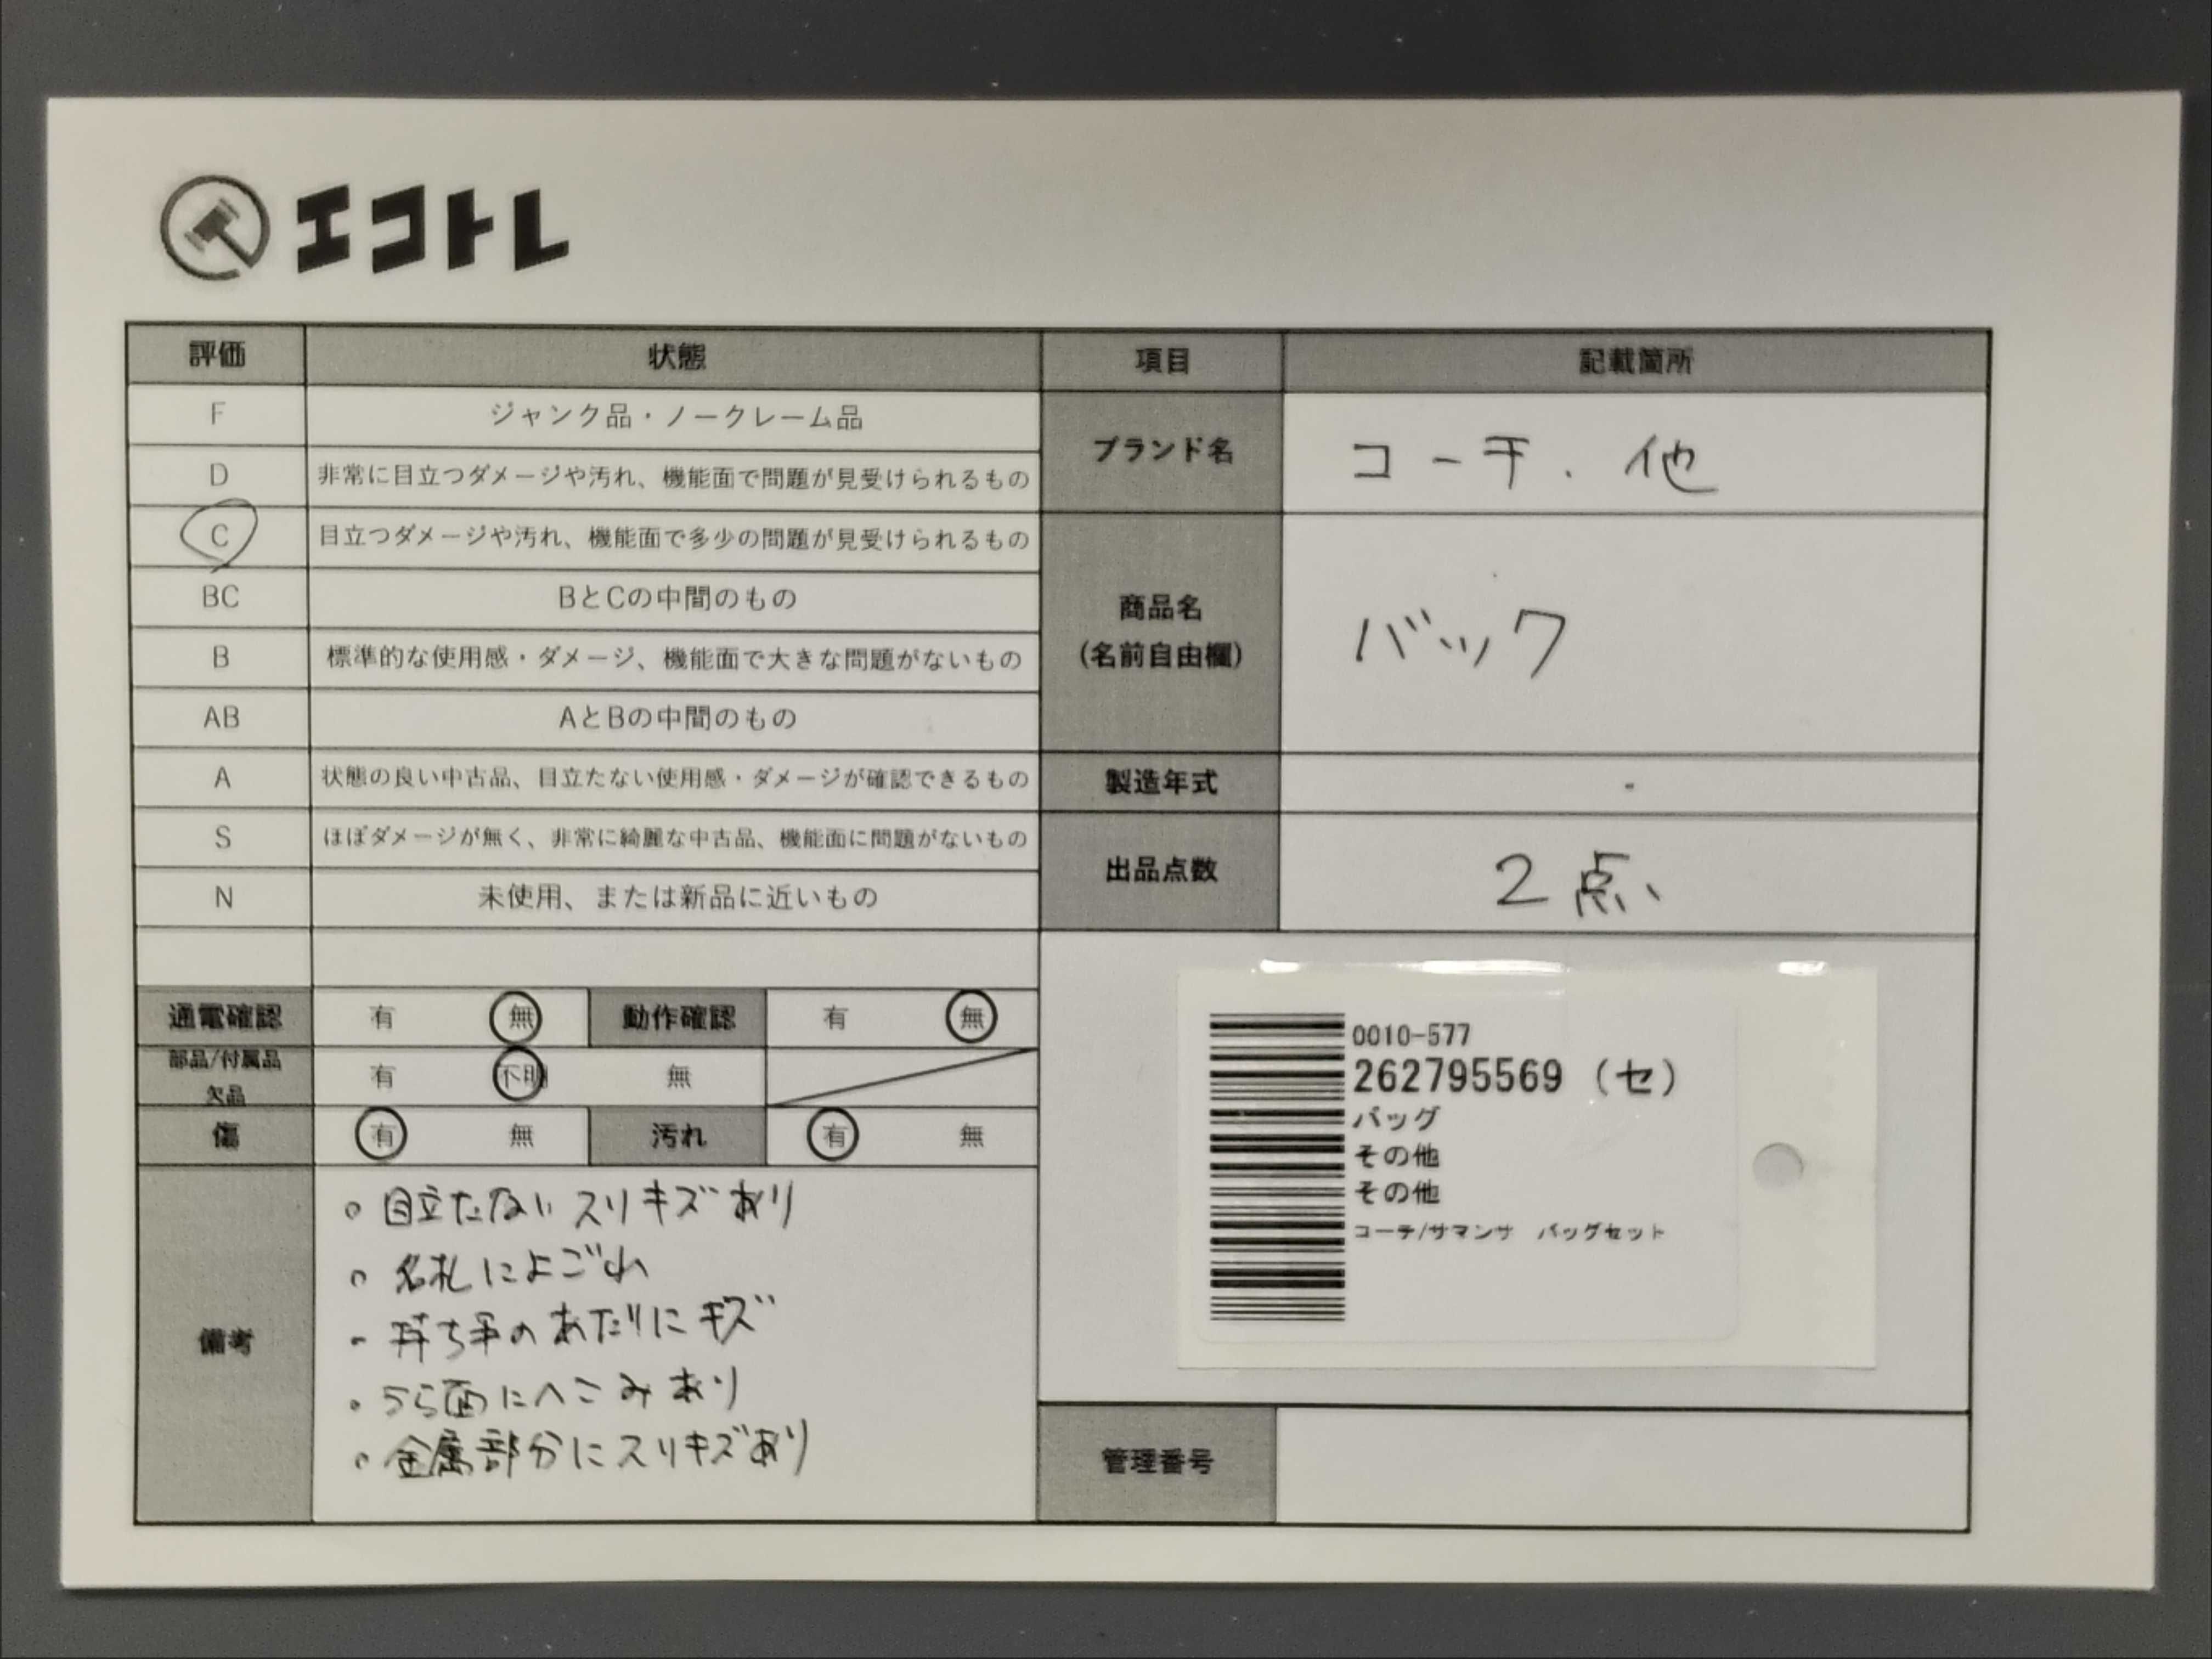 エコトレ
評価 状態 項目 記載箇所
F ジャンク品・ノークレーム品
D 非常に目立つダメージや汚れ、機能面で問題が見受けられるもの
C 目立つダメージや汚れ、機能面で多少の問題が見受けられるもの
BC BとCの中間のもの
B 標準的な使用感・ダメージ、機能面で大きな問題がないもの
AB AとBの中間のもの
A 状態の良い中古品、目立たない使用感・ダメージが確認できるもの
S ほぼダメージが無く、非常に綺麗な中古品、機能面に問題がないもの
N 未使用、または新品に近いもの
ブランド名 コーチ.他
商品名
(名前自由欄)
バック
製造年式 -
出品点数 2点
通電確認 有 無 動作確認 有 無
部品/付属品
欠品
有 不明 無
傷 有 無 汚れ 有 無
備考
。目立たないスリキズあり
。名札によごれ
・持ち手のあたりにキズ
。うら面にへこみあり
。金属部分にスリキズあり
0010-577
262795569 (セ)
バッグ
その他
その他
コーチ/サマンサ バッグセット
管理番号